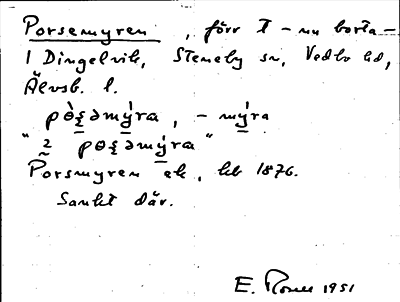 Porsemyren, förr t – nu borta –
1 Dingelvik, Steneby sn, Vedbo hd,
Älvsb. l.
pɵ̀ꞩəmýra, – mýra
" 2 pɵꞩəmýra "
Porsmyren ek, hb 1876.
Sankt där.
E. 1951